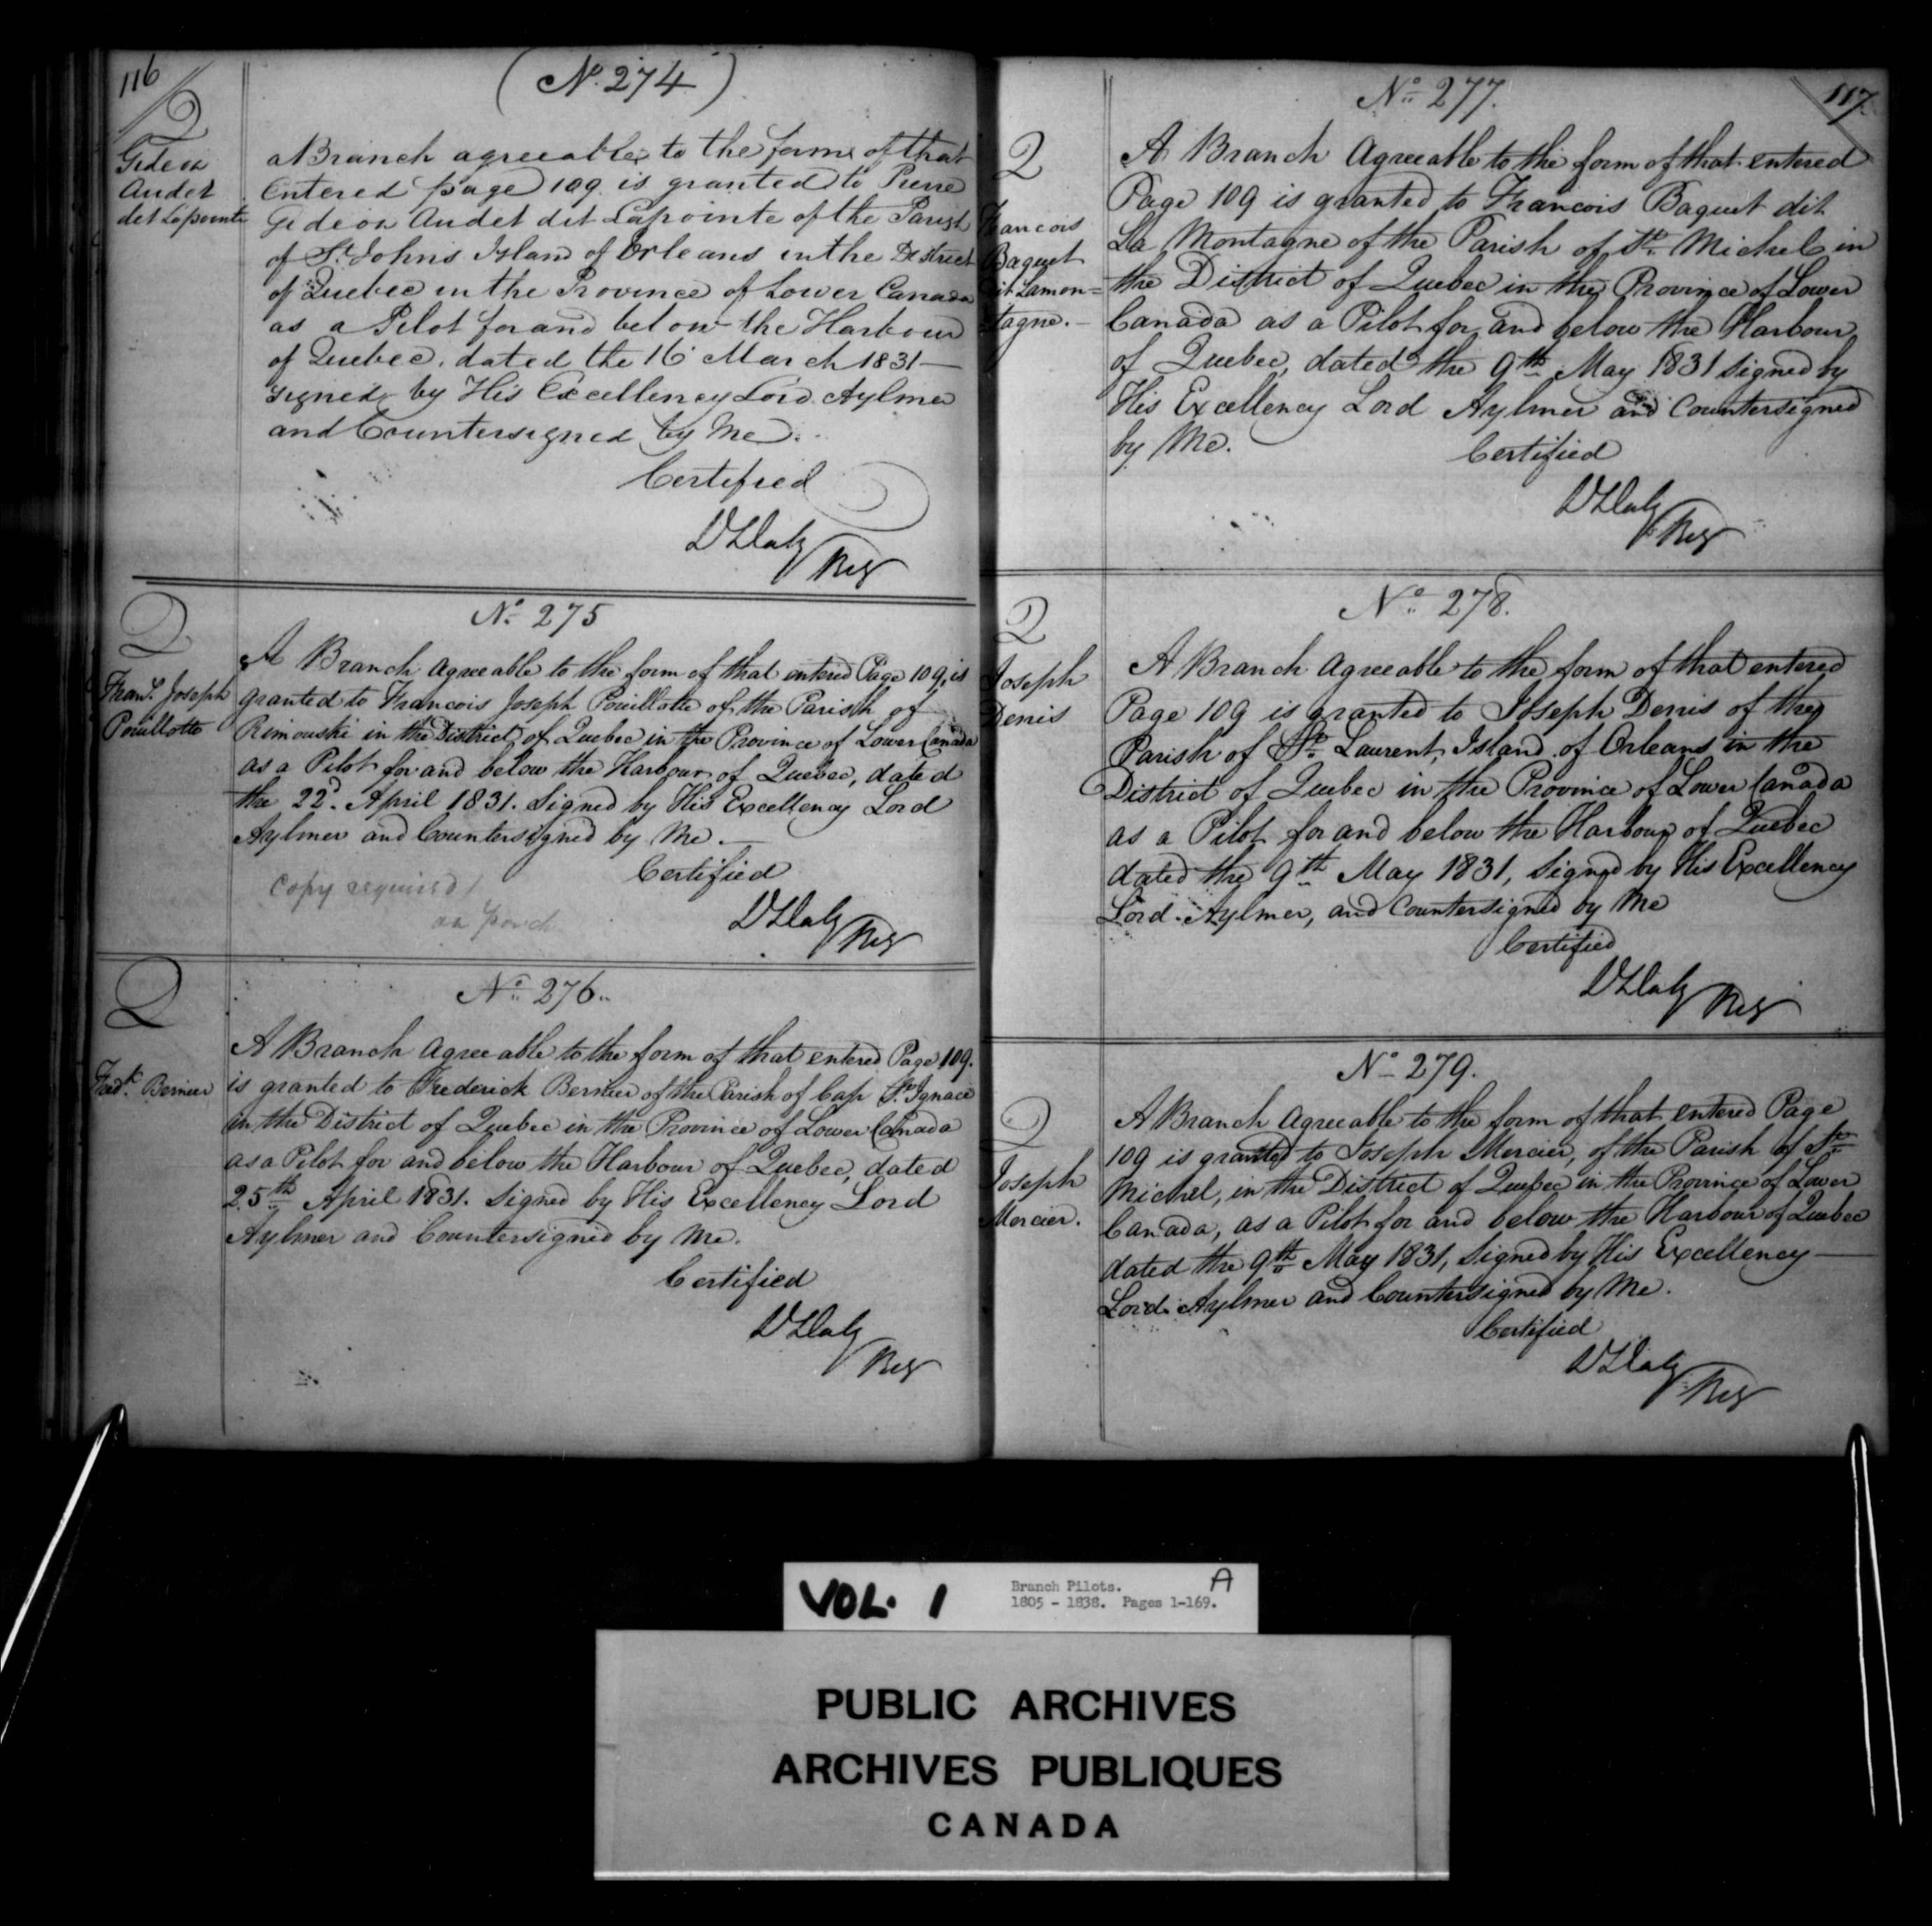 116
(No. 274)
Q
Gedeon
Audet
dit Lapointe
a Branch agreeable to the form of that
Entered page 109 is granted to Pierre
Gedeon Audet dit Lapointe of the Parish
of St. Johns Island of Orleans in the District
of Quebec in the Province of Lower Canada
as a Pilot for and below the Harbour
of Quebec. dated the 16 March 1831 —
signed by His Excellency Lord Aylmer
and Countersigned by Me.
Certified
D Daly
Reg
No. 275
Q
Frans. Joseph
Pouillotte
A Branch Agreeable to the form of that entered Page 109, is
granted to Francois Joseph Pouillotte of the Parish of
Rimouski in the District of Quebec in the Province of Lower Canada
as a Pilot for and below the Harbour of Quebec, dated
the 22d. April 1831. Signed by His Excellency Lord
Aylmer and Countersigned by Me. —
Certified
Copy required
D Daly
Reg
No. 276
Q
Fredk. Bernier
A Branch Agreeable to the form of that entered Page 109.
is granted to Frederick Bernier of the Parish of Cap St. Ignace
in the District of Quebec in the Province of Lower Canada
as a Pilot for and below the Harbour of Quebec, dated
25th April 1831. Signed by His Excellency Lord
Aylmer and Countersigned by Me.
Certified
D Daly
Reg
117
No. 277.
Q
Francois
Baquet
dit Lamon=
tagne. —
A Branch Agreeable to the form of that entered
Page 109 is granted to Francois Baquet dit
La Montagne of the Parish of St. Michel in
the District of Quebec in the Province of Lower
Canada as a Pilot for and below the Harbour
of Quebec, dated the 9th May 1831 signed by
His Excellency Lord Aylmer and Countersigned
by Me.
Certified
D Daly
Reg
No. 278.
Q
Joseph
Denis
A Branch Agreeable to the form of that entered
Page 109 is granted to Joseph Denis of the
Parish of St. Laurent, Island of Orleans in the
District of Quebec in the Province of Lower Canada
as a Pilot for and below the Harbour of Quebec
dated the 9th May 1831, Signed by His Excellency
Lord Aylmer, and Countersigned by Me
Certified
D Daly
Reg
No. 279.
Q
Joseph
Mercier.
A Branch Agreeable to the form of that entered Page
109 is granted to Joseph Mercier, of the Parish of St.
Michel, in the District of Quebec in the Province of Lower
Canada, as a Pilot for and below the Harbour of Quebec
dated the 9th May 1831, Signed by His Excellency —
Lord Aylmer and Countersigned by Me.
Certified
D Daly
Reg
VOL. 1
Branch Pilots. A
1805 - 1838. Pages 1-169.
PUBLIC ARCHIVES
ARCHIVES PUBLIQUES
CANADA